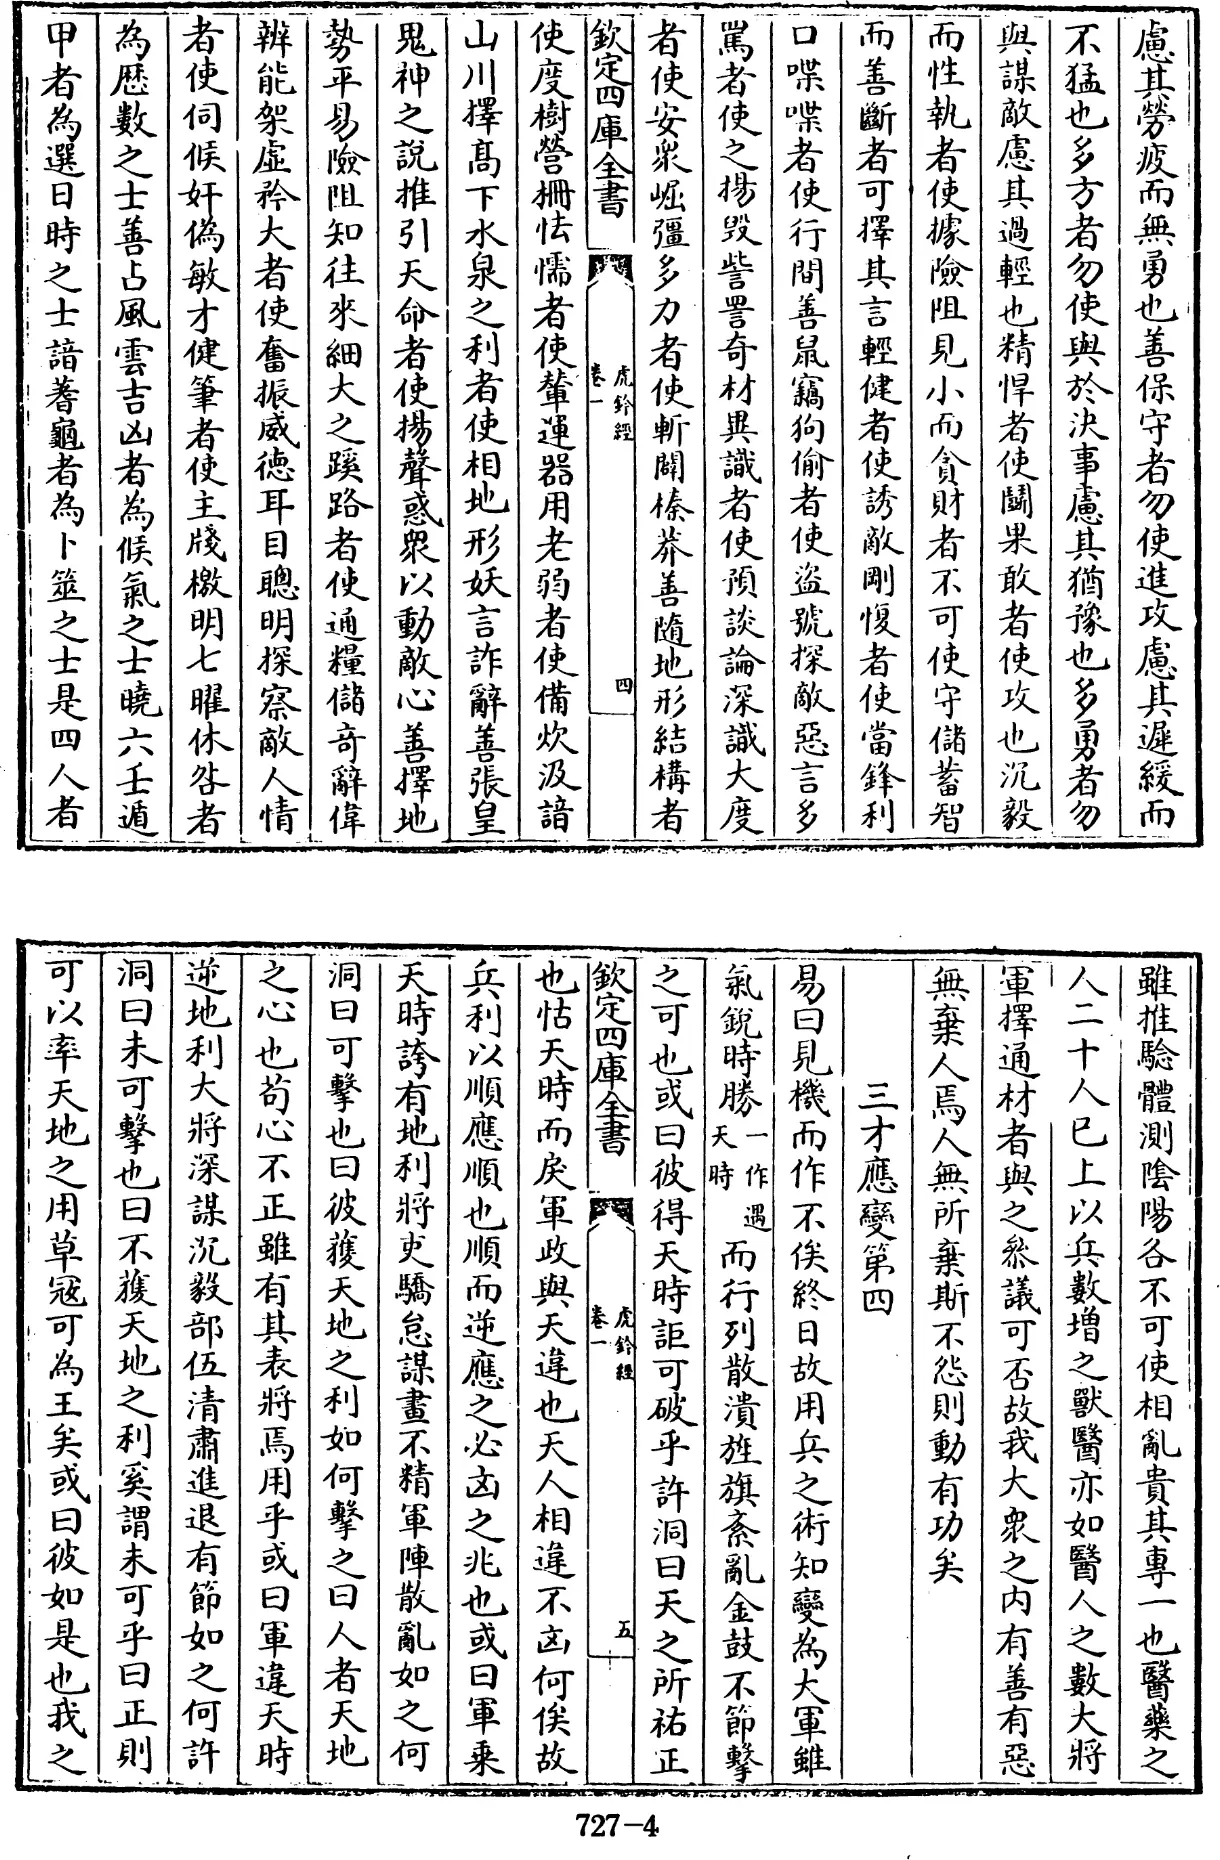 慮其勞疲而無勇也善保守者勿使進攻慮其遲緩而
不猛也多方者勿使與於決事慮其猶豫也多勇者勿
與謀敵慮其過輕也精悍者使鬭果敢者使攻也沉毅
而性執者使據險阻見小而貪財者不可使守儲蓄智
而善斷者可擇其言輕健者使誘敵剛愎者使當鋒利
口喋喋者使行間善鼠竊狗偷者使盜號探敵惡言多
罵者使之揚毀訾詈奇材異識者使預談論深識大度
者使安衆崛彊多力者使斬闢榛莽善隨地形結構者
欽定四庫全書
虎鈐經
卷一
四
使度樹營柵怯懦者使輦運器用老弱者使備炊汲諳
山川擇髙下水泉之利者使相地形妖言詐辭善張皇
鬼神之說推引天命者使揚聲惑衆以動敵心善擇地
勢平易險阻知往來細大之蹊路者使通糧儲奇辭偉
辨能架虛矜大者使奮振威德耳目聰明探察敵人情
者使伺候奸偽敏才健筆者使主牋檄明七曜休咎者
為歴數之士善占風雲吉凶者為候氣之士曉六壬遁
甲者為選日時之士諳蓍龜者為卜筮之士是四人者
雖推驗體測陰陽各不可使相亂貴其專一也醫藥之
人二十人已上以兵數增之獸醫亦如醫人之數大將
軍擇通材者與之叅議可否故我大衆之内有善有惡
無棄人焉人無所棄斯不怨則動有功矣
三才應變第四
易曰見機而作不俟終日故用兵之術知變為大軍雖
氣銳時勝一作遇天時而行列散潰旌旗紊亂金鼓不節擊
之可也或曰彼得天時詎可破乎許洞曰天之所祐正
欽定四庫全書
虎鈐經
卷一
五
也怙天時而戾軍政與天違也天人相違不凶何俟故
兵利以順應順也順而逆應之必凶之兆也或曰軍乘
天時誇有地利將吏驕怠謀畫不精軍陣散亂如之何
洞曰可擊也曰彼獲天地之利如何擊之曰人者天地
之心也苟心不正雖有其表將焉用乎或曰軍違天時
逆地利大將深謀沉毅部伍清肅進退有節如之何許
洞曰未可擊也曰不獲天地之利奚謂未可乎曰正則
可以率天地之用草冦可為王矣或曰彼如是也我之
727-4